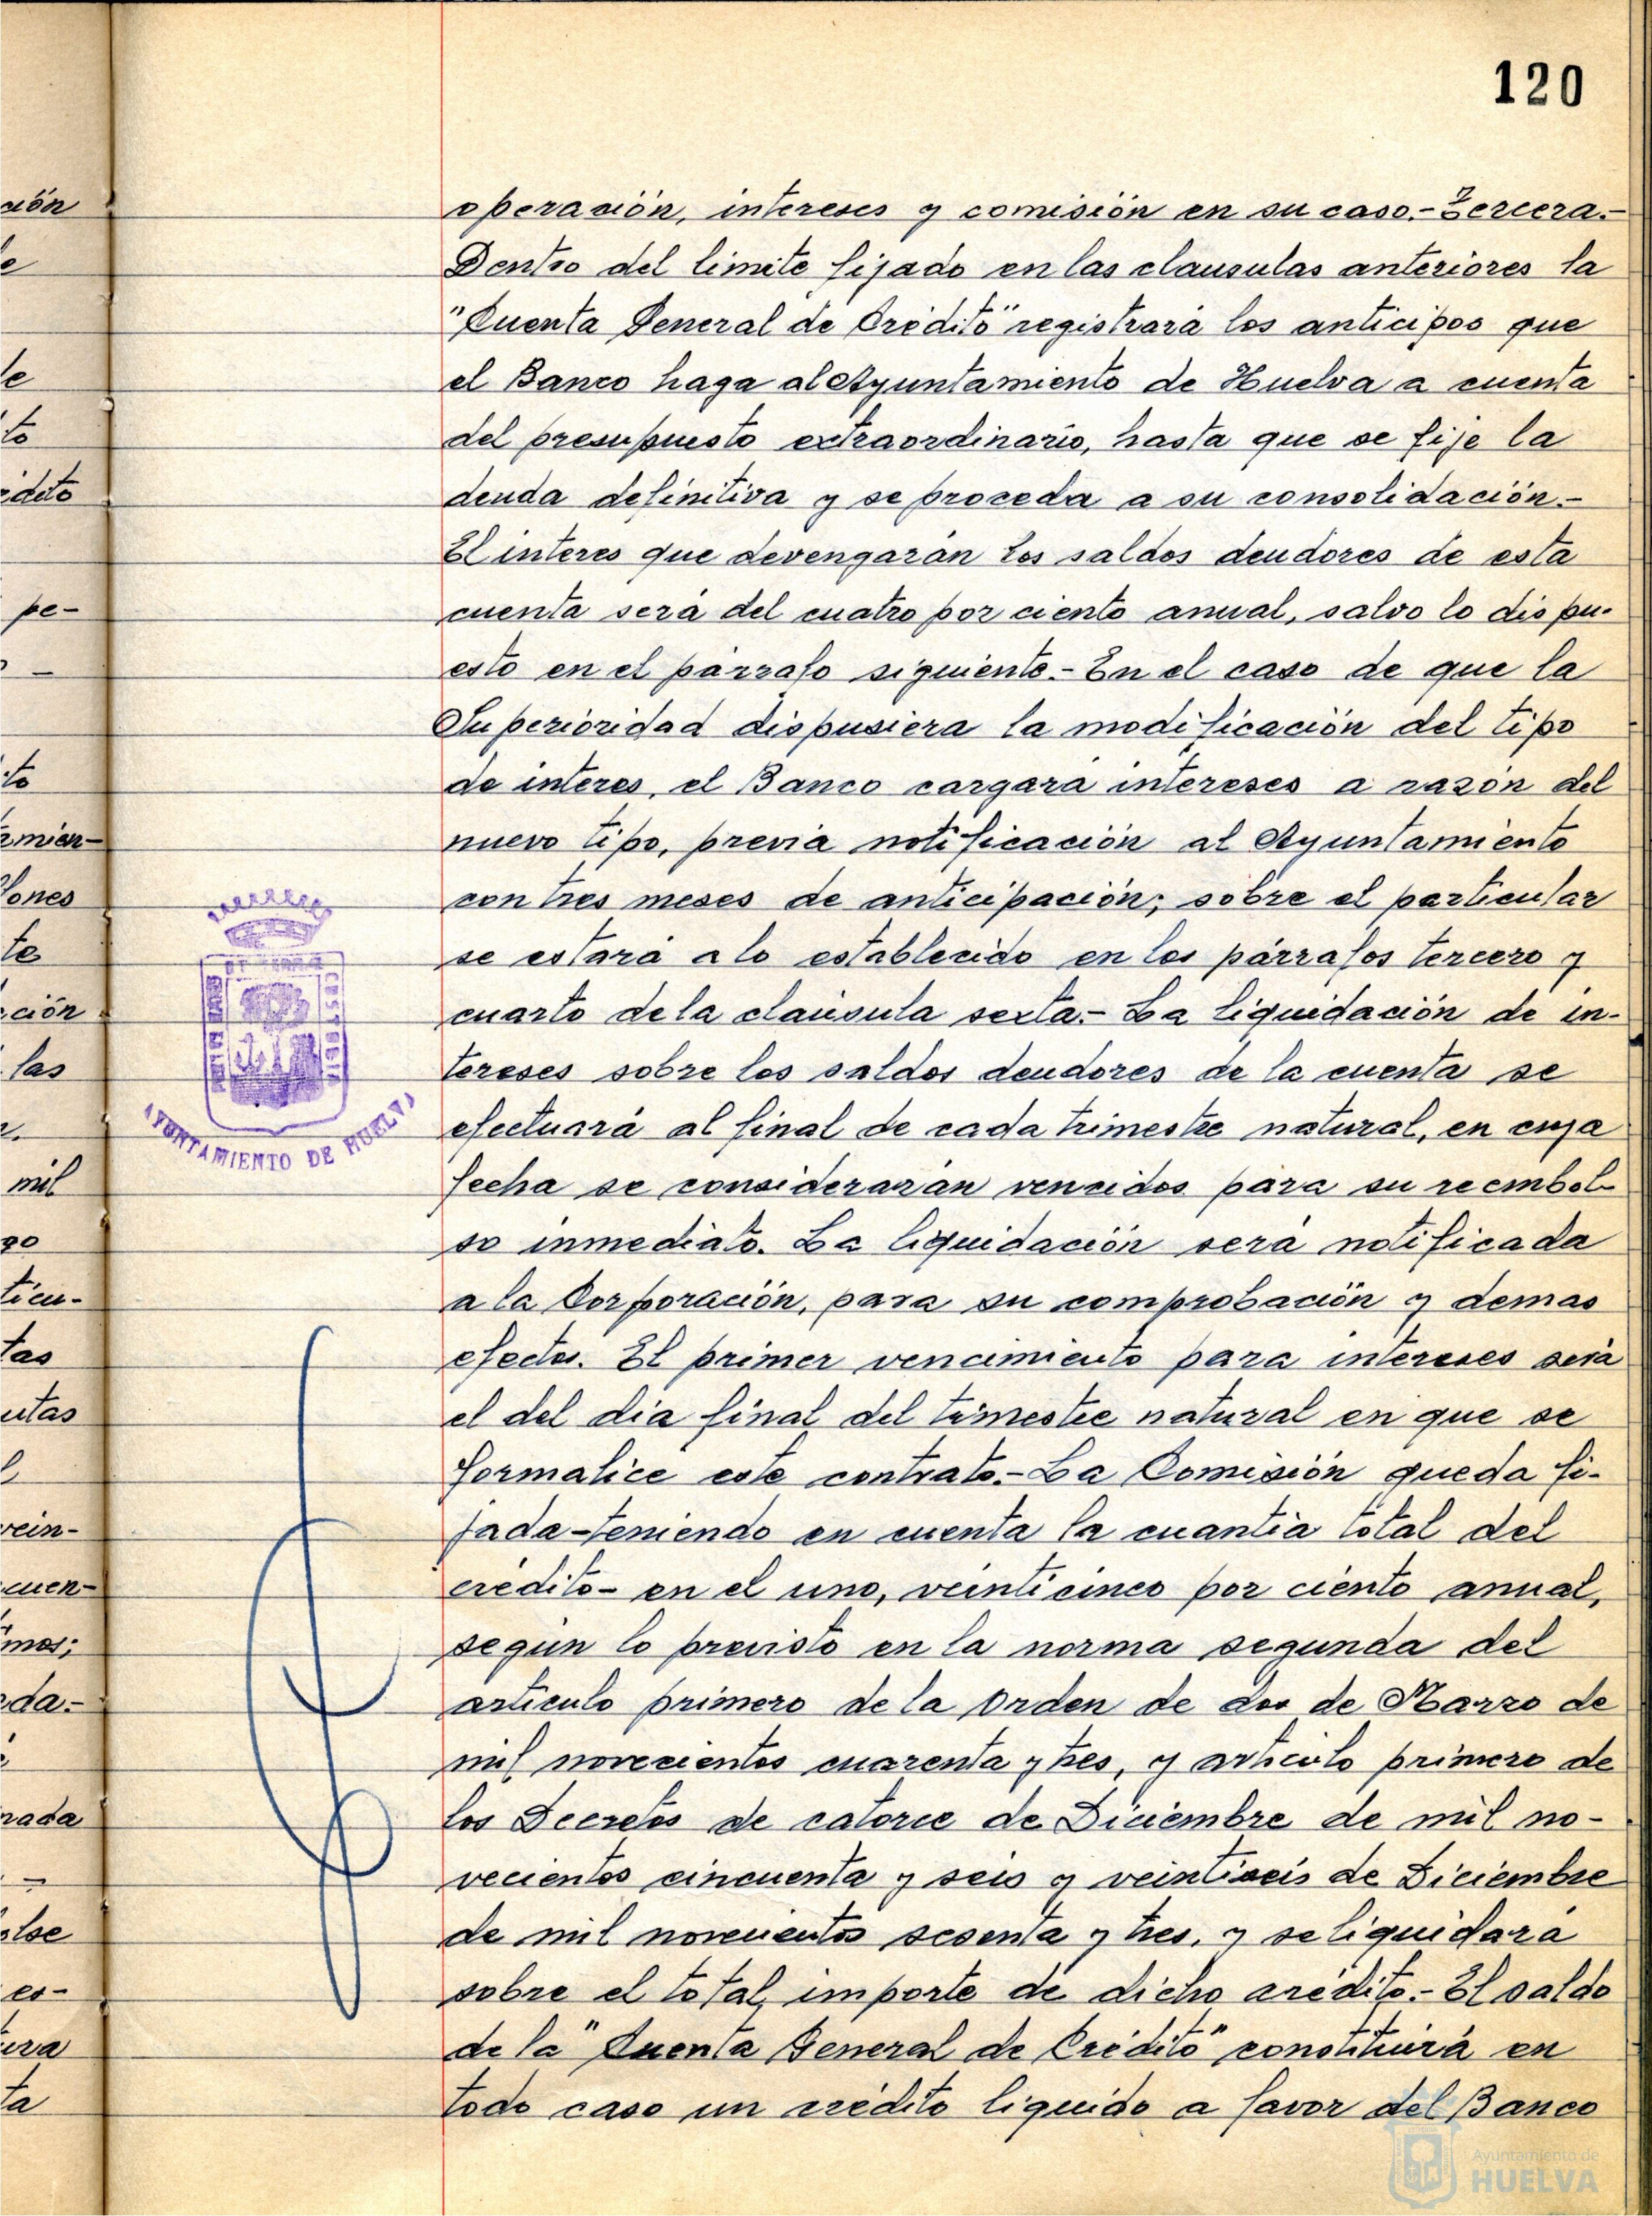 120
operación, intereses y comisión en su caso.- Tercera.-
Dentro del limite fijado en las clausulas anteriores la
"Cuenta General de Crédito" registrará los anticipos que
el Banco haga al Ayuntamiento de Huelva a cuenta
del presupuesto extraordinario, hasta que se fije la
deuda definitiva y se proceda a su consolidación.-
El interes que devengarán los saldos deudores de esta
cuenta será del cuatro por ciento anual, salvo lo dispu-
esto en el párrafo siguiente.- En el caso de que la
Superioridad dispusiera la modificación del tipo
de interes, el Banco cargará intereses a razón del
nuevo tipo, previa notificación al Ayuntamiento
con tres meses de anticipación; sobre el particular
se estará a lo establecido en los párrafos tercero y
cuarto de la claúsula sexta.- La liquidación de in-
tereses sobre los saldos deudores de la cuenta se
efectuará al final de cada trimestre natural, en cuya
fecha se considerarán vencidos para su reembol-
so inmediato. La liquidación será notificada
a la Corporación, para su comprobación y demas
efectos. El primer vencimiento para intereses será
el del dia final del trimestre natural en que se
formalice este contrato.- La Comisión queda fi-
jada -teniendo en cuenta la cuantia total del
crédito- en el uno, veinticinco por ciento anual,
según lo previsto en la norma segunda del
artículo primero de la Orden de dos de Marzo de
mil novecientos cuarenta y tres, y artículo primero de
los Decretos de catorce de Diciembre de mil no-
vecientos cincuenta y seis y veintiseis de Diciembre
de mil novecientos sesenta y tres, y se liquidará
sobre el total importe de dicho crédito.- El saldo
de la "Cuenta General de Crédito" constituirá en
todo caso un crédito líquido a favor del Banco
AYUNTAMIENTO DE HUELVA
Ayuntamiento de
HUELVA